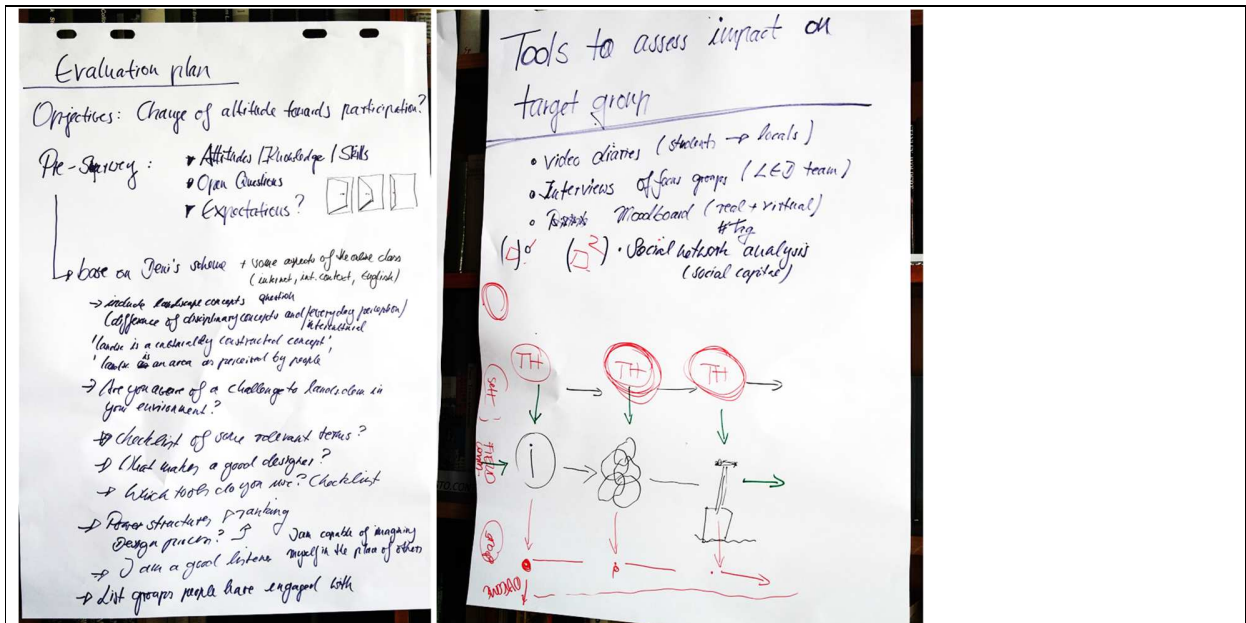 Evaluation plan
Objectives: Change of attitude towards participation?
Pre-Survey:
Attitudes / Knowledge / Skills
Open Questions
Expectations?
base on Deni's scheme + some aspects of the online class
(internet, int. context, English)
→ include landscape concepts question
(difference of disciplinary concepts and/everyday perception)
/intercultural
'landsc is a culturally constructed concept',
'landsc is an area as perceived by people'
→ Are you aware of a challenge to landsdem in
your environment?
→ checklist of some relevant terms?
→ What makes a good designer?
→ Which tools do you use? Checklist
→ Power structures ranking
Design process?
I am capable of imagining
myself in the place of others
→ I am a good listener
→ List groups people have engaged with
Tools to assess impact on
target group
• video diaries (students → locals)
• Interviews of focus groups (LED team)
• Moodboard (real + virtual)
# Tag
• Social network analysis
(social capital)
TH TH TH
i
FIELD